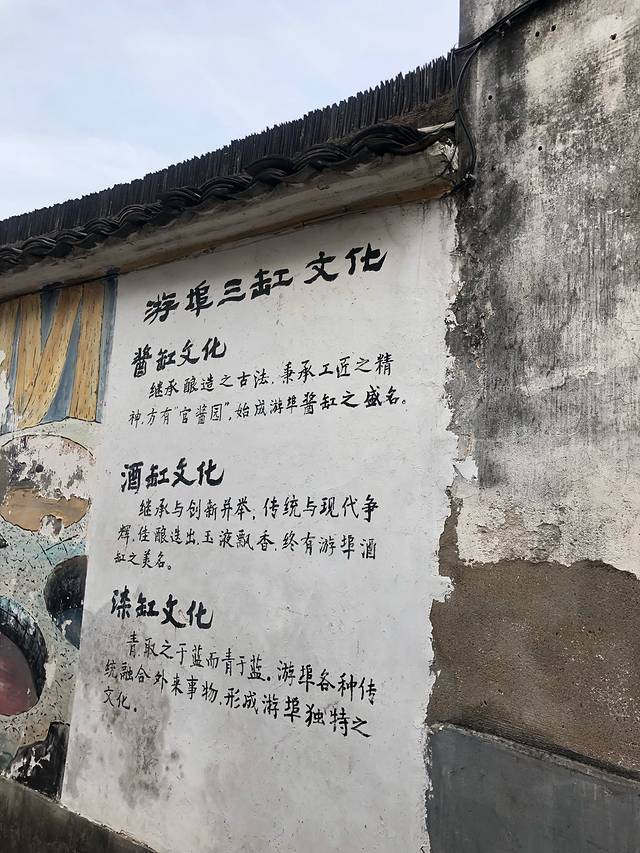 游埠三缸文化
酱缸文化
继承酿造之古法，秉承工匠之精
神，方有“官酱园”，始成游埠酱缸之盛名。
酒缸文化
继承与创新并举，传统与现代争
辉，佳酿造出，玉液飘香，终有游埠酒
缸之美名。
染缸文化
青取之于蓝而青于蓝。游埠各种传
统融合外来事物，形成游埠独特之
文化。